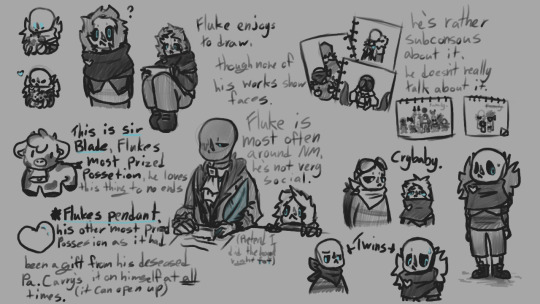 ?
Fluke enjoys
to draw,
though now of
his works show
faces.
he's rather
subconsous
about it.
he doesn't really
talk about it.
This is sir
Blade, Flukes
most Prized
Possetion, he loves
this thing to no ends
Fluke is
most often
around NM,
he's not very
social.
*Flukes pendant,
his other most Prized
Possesion as it had
been a gift from his deseased
Pa. Carrys it on himself at all
times. (it can open up)
Crybaby.
Twins